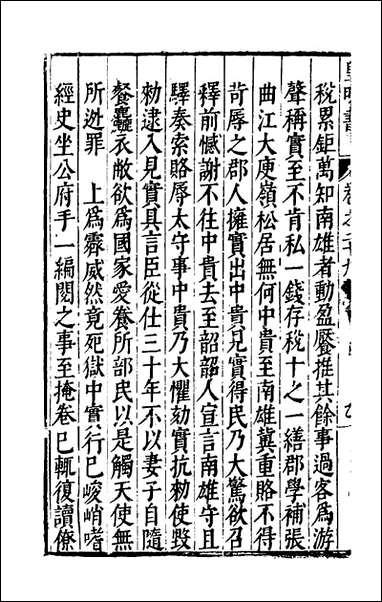 稅累鉅萬知南雄者動盈壓推其餘事過客爲游
聲稱實至不肯私一錢存稅十之一繕郡學補張
曲江大庾嶺松居無何中貴至南雄冀重賂不得
苛辱之郡人擁實出中貴見實得民乃大驚欲召
釋前憾謝不往中貴去至韶韶人宣言南雄守且
驛奏索賂辱太守事中貴乃大懼劾實抗勑使毀
勑逮入見實具言臣從仕三十年不以妻子自隨
餐麤衣敝欲爲國家愛養所部民以是觸天使無
所逃罪　上爲霽威然竟死獄中實行已峻峭嗜
經史坐公府手一編閱之事至掩卷已輒復讀僚